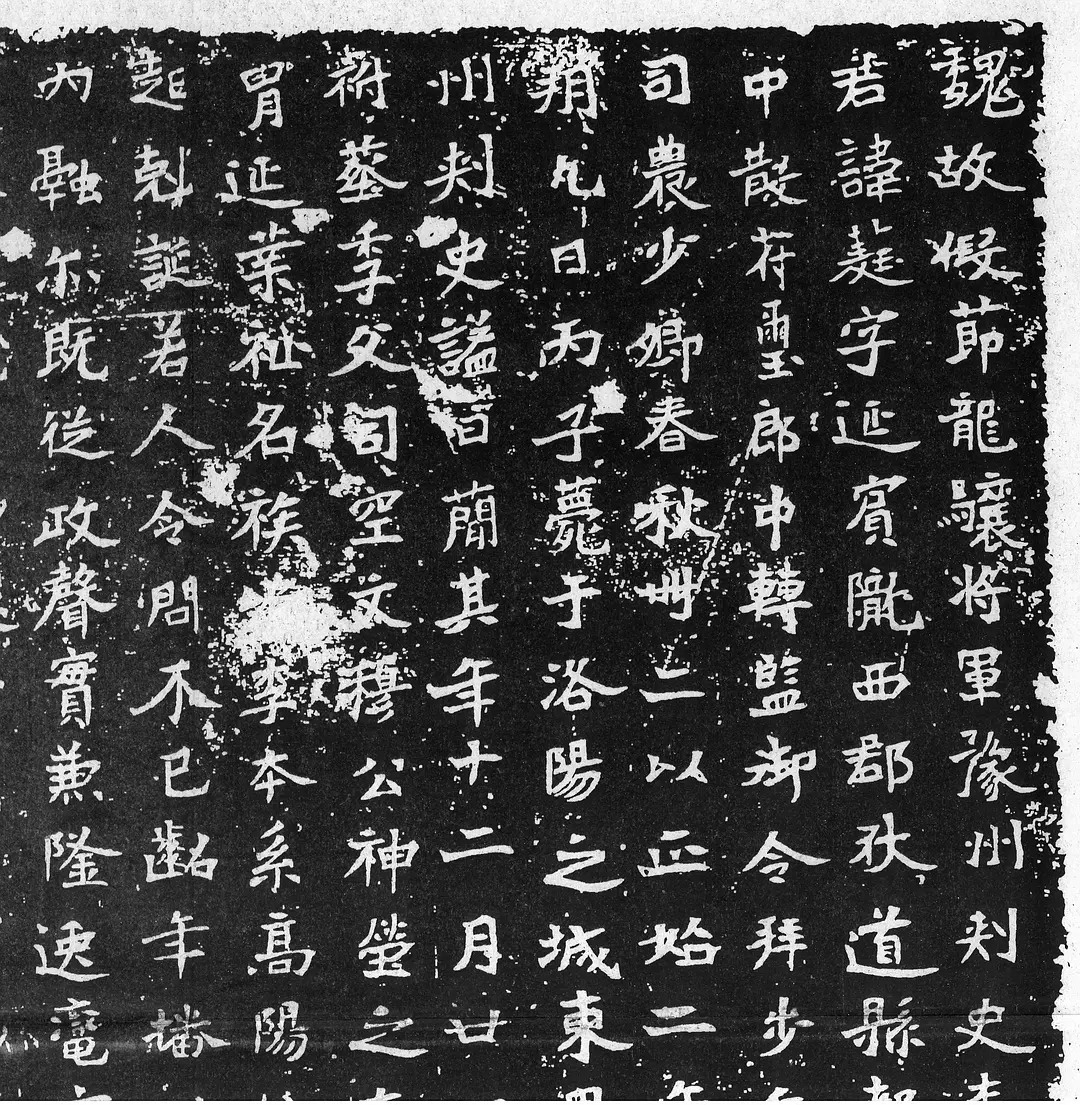 魏故假節龍驤將軍豫州刺史
君諱蕤字延賓隴西郡狄道縣
中散苻璽郎中轉監御令拜步
司農少卿春秋卌二以正始二年
朔九日丙子薨于洛陽之城東
州刺史謚曰簡其年十二月廿
祔葬季父司空文穆公神塋之
胄延葉祉名族李本系高陽
超剋誕若人令問不已齠年播
內融尓既從政聲實兼隆